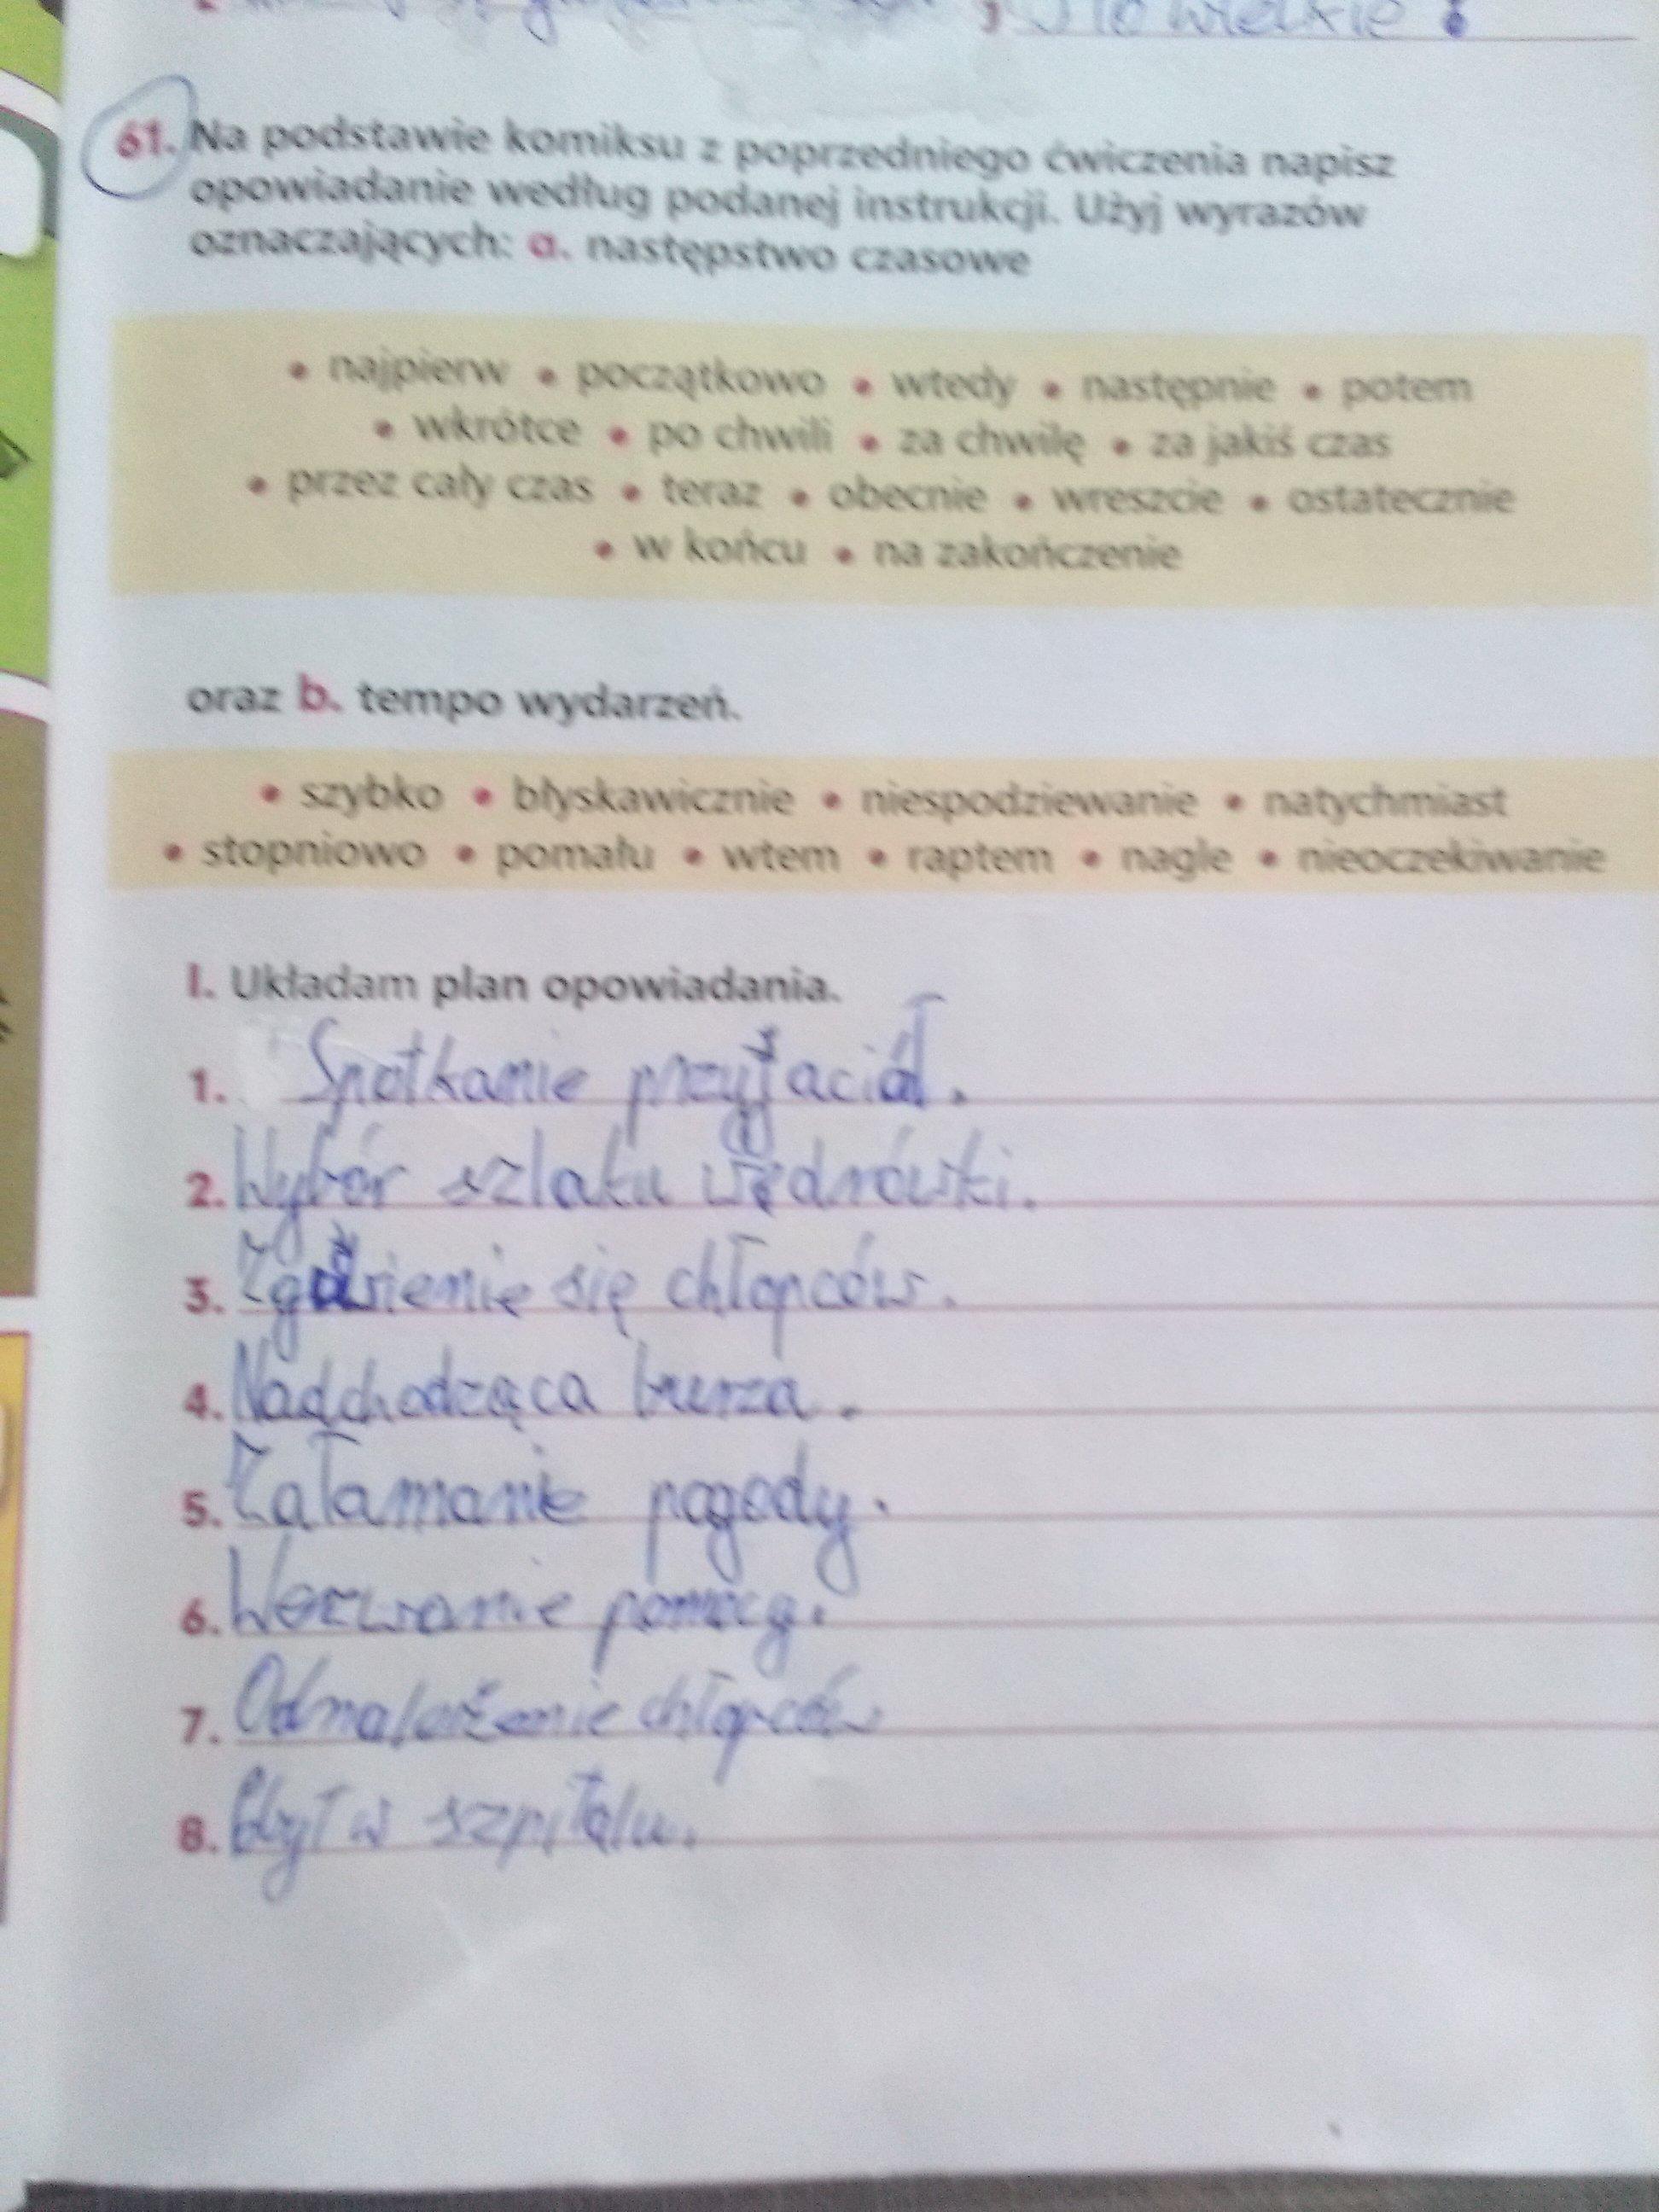 to wielkie !
61. Na podstawie komiksu z poprzedniego ćwiczenia napisz
opowiadanie według podanej instrukcji. Użyj wyrazów
oznaczających: a. następstwo czasowe
• najpierw • początkowo • wtedy • następnie • potem
• wkrótce • po chwili • za chwilę • za jakiś czas
• przez cały czas • teraz • obecnie • wreszcie • ostatecznie
• w końcu • na zakończenie
oraz b. tempo wydarzeń.
• szybko • błyskawicznie • niespodziewanie • natychmiast
• stopniowo • pomału • wtem • raptem • nagle • nieoczekiwanie
I. Układam plan opowiadania.
1. Spotkanie przyjaciół.
2. Wybór szlaku wędrówki.
3. się chłopców.
4. Nadchodząca burza.
5. Załamanie pogody.
6. Wezwanie pomocy.
7. Odnalezienie chłopców
8. w szpitalu.